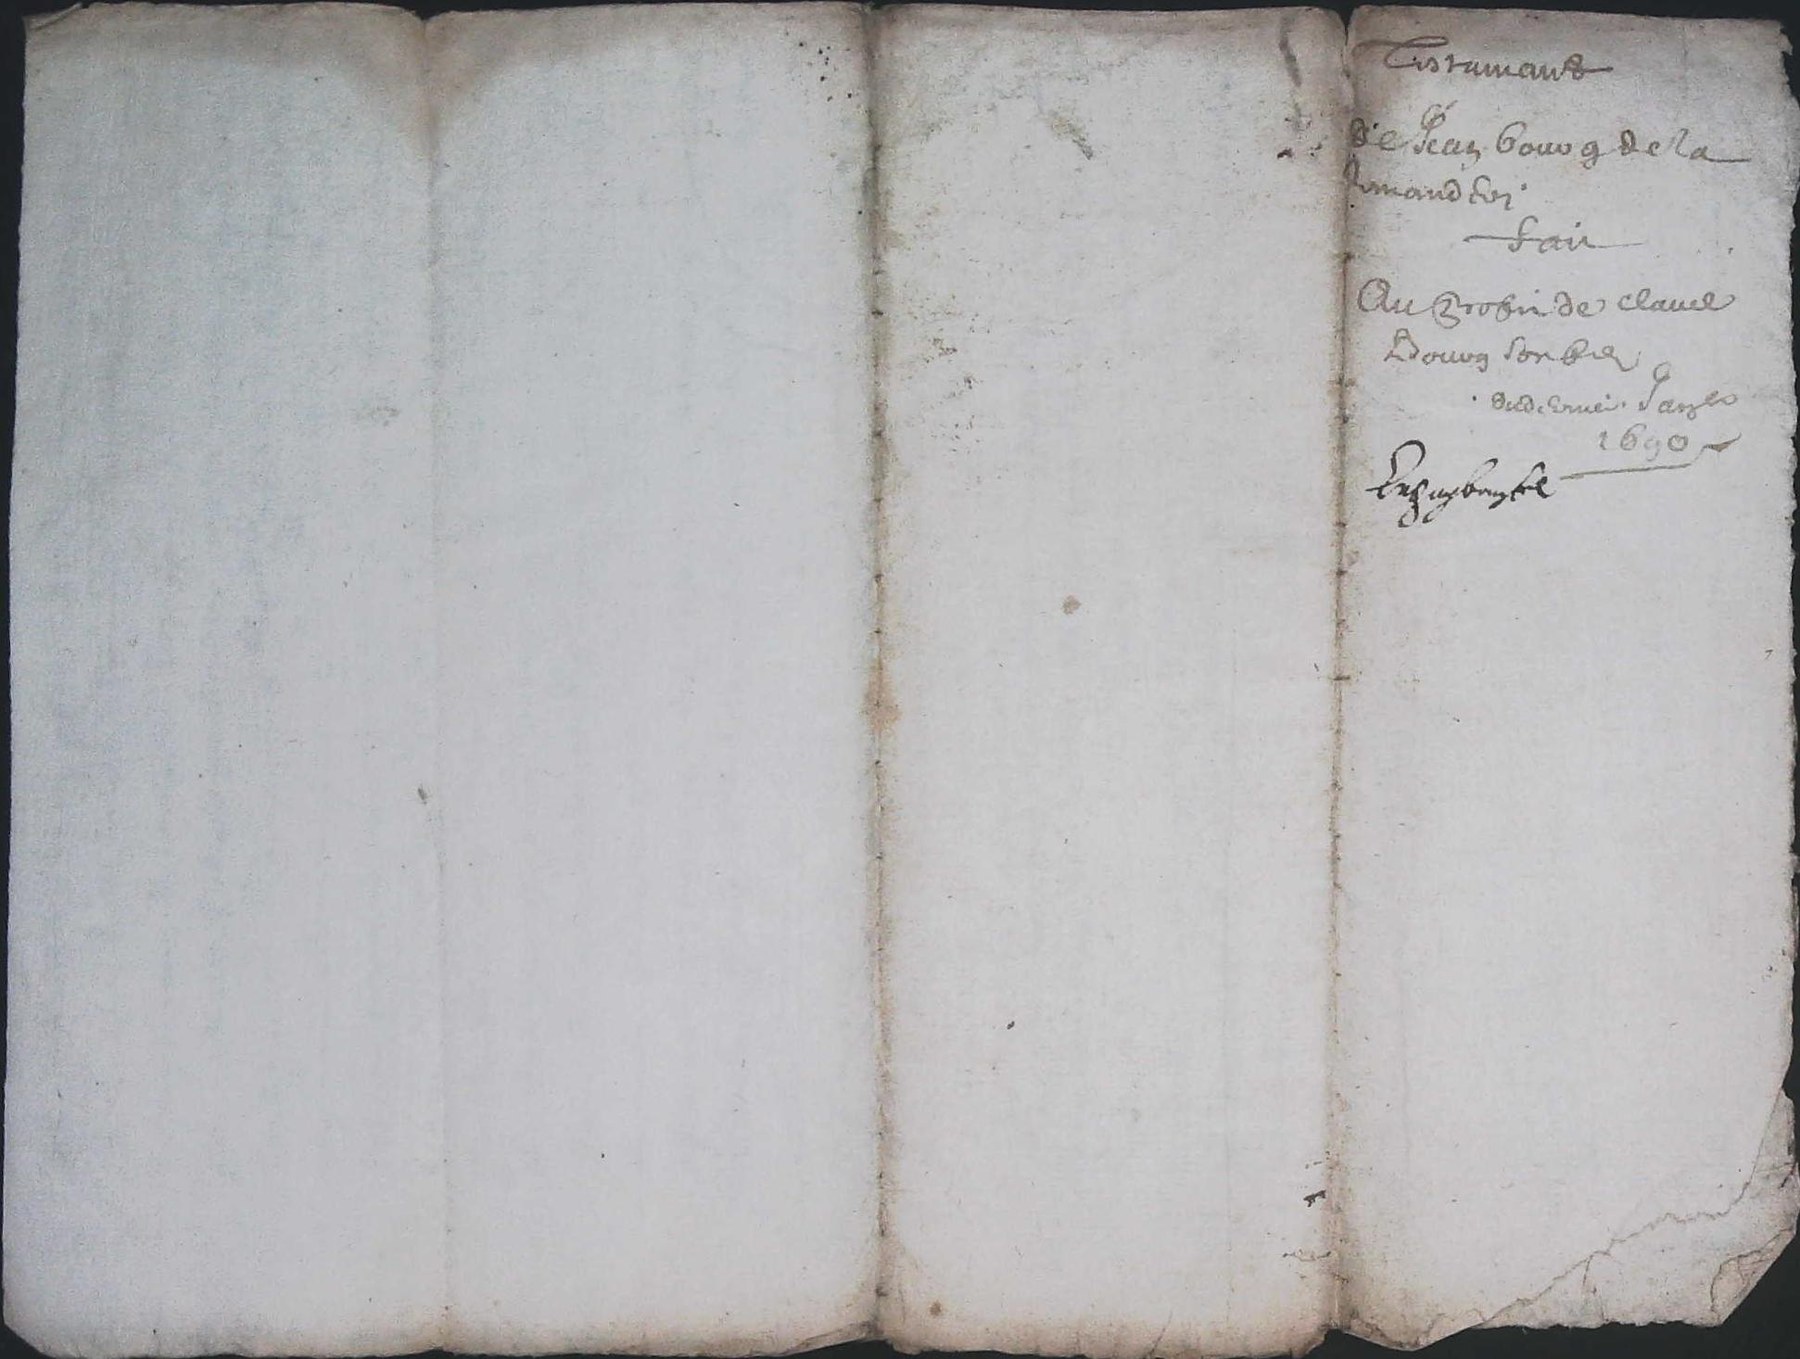 Testamant
de Jean bourg de la
fait
Au profit de Claude
bourg son fils
du dernier Janv
1690